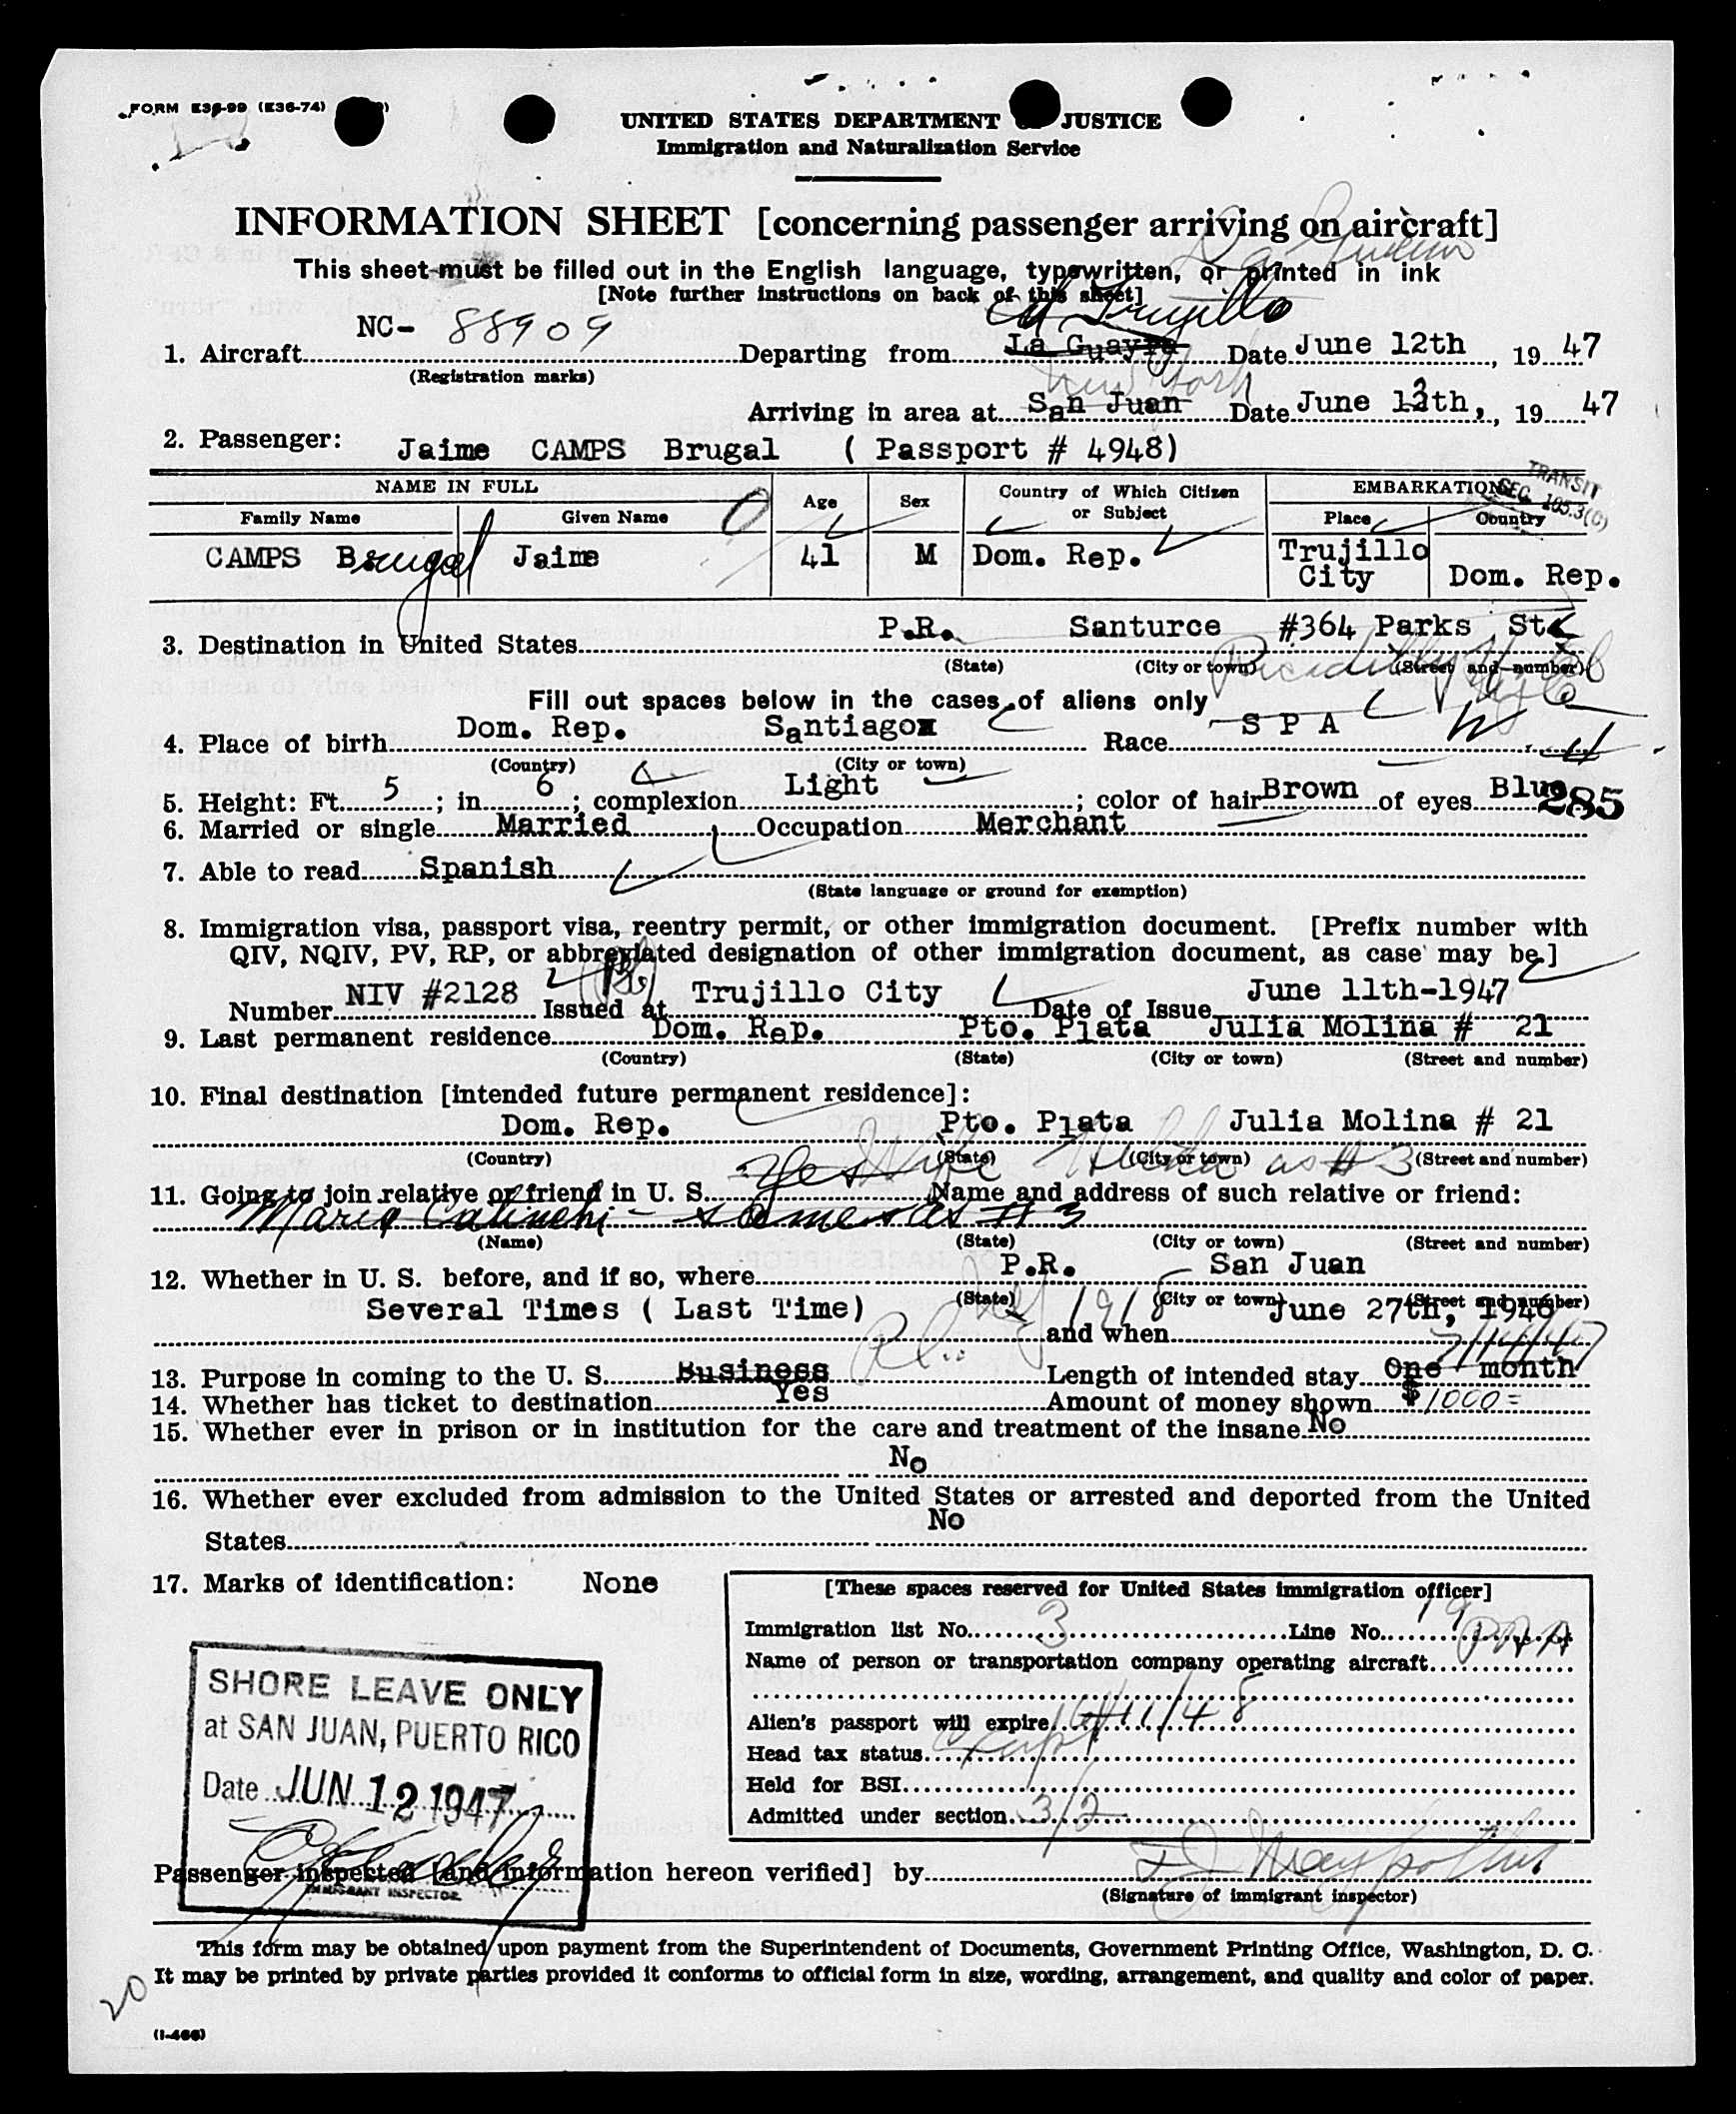 FORM E36-99 (E36-74)
UNITED STATES DEPARTMENT JUSTICE
Immigration and Naturalization Service
INFORMATION SHEET [concerning passenger arriving on aircraft]
This sheet must be filled out in the English language, typewritten, or printed in ink
[Note further instructions on back of this sheet]
Trujillo
NC- 88909
1. Aircraft Departing from La Guayra Date June 12th, 1947
(Registration marks)
New York
Arriving in area at San Juan Date June 13th, 1947
2. Passenger: Jaime CAMPS Brugal ( Passport # 4948)
TRANSIT
SEC 105.3(C)
NAME IN FULL Age Sex Country of Which Citizen or Subject EMBARKATION
Family Name Given Name Place Country
CAMPS Brugal Jaime 41 M Dom. Rep. Trujillo City Dom. Rep.
3. Destination in United States P.R. Santurce #364 Parks St
(State) (City or town) (Street and number)
Picadilly Hotel
Fill out spaces below in the cases of aliens only
4. Place of birth Dom. Rep. Santiagox Race S P A W
(Country) (City or town)
5. Height: Ft. 5; in. 6; complexion Light; color of hair Brown of eyes Blue
285
6. Married or single Married Occupation Merchant
7. Able to read Spanish
(State language or ground for exemption)
8. Immigration visa, passport visa, reentry permit, or other immigration document. [Prefix number with
QIV, NQIV, PV, RP, or abbreviated designation of other immigration document, as case may be.]
Number NIV #2128 Issued at Trujillo City Date of Issue June 11th-1947
9. Last permanent residence Dom. Rep. Pto. Plata Julia Molina # 21
(Country) (State) (City or town) (Street and number)
10. Final destination [intended future permanent residence]:
Dom. Rep. Pto. Plata Julia Molina # 21
(Country) (State) (City or town) (Street and number)
Yes Wife as # 3
11. Going to join relative or friend in U. S. Name and address of such relative or friend:
same as # 3
(Name) (State) (City or town) (Street and number)
12. Whether in U. S. before, and if so, where P.R. San Juan
(State) (City or town) (Street and number)
Several Times ( Last Time) 1918 and when June 27th, 1946
13. Purpose in coming to the U. S. Business Length of intended stay One month
14. Whether has ticket to destination Yes Amount of money shown $1000=
15. Whether ever in prison or in institution for the care and treatment of the insane No
No
16. Whether ever excluded from admission to the United States or arrested and deported from the United
States No
17. Marks of identification: None
[These spaces reserved for United States immigration officer]
Immigration list No. 3 Line No. 19
Name of person or transportation company operating aircraft PAA
Alien's passport will expire
Head tax status
Held for BSI
Admitted under section 3/2
SHORE LEAVE ONLY
at SAN JUAN, PUERTO RICO
Date JUN 12 1947
IMMIGRANT INSPECTOR
Passenger inspected [and information hereon verified] by
(Signature of immigrant inspector)
This form may be obtained upon payment from the Superintendent of Documents, Government Printing Office, Washington, D. C.
It may be printed by private parties provided it conforms to official form in size, wording, arrangement, and quality and color of paper.
20
(I-466)